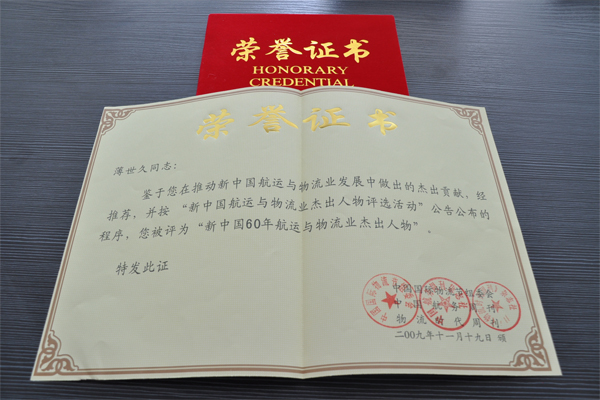 荣誉证书
HONORARY
CREDENTIAL
荣誉证书
薄世久同志：
鉴于您在推动新中国航运与物流业发展中做出的杰出贡献。经
推荐，并按“新中国航运与物流业杰出人物评选活动”公告公布的
程序，您被评为“新中国60年航运与物流业杰出人物”。
特发此证
中国国际物流节组委会
中国航务周刊
物流时代周刊
二00九年十一月十九日 颁